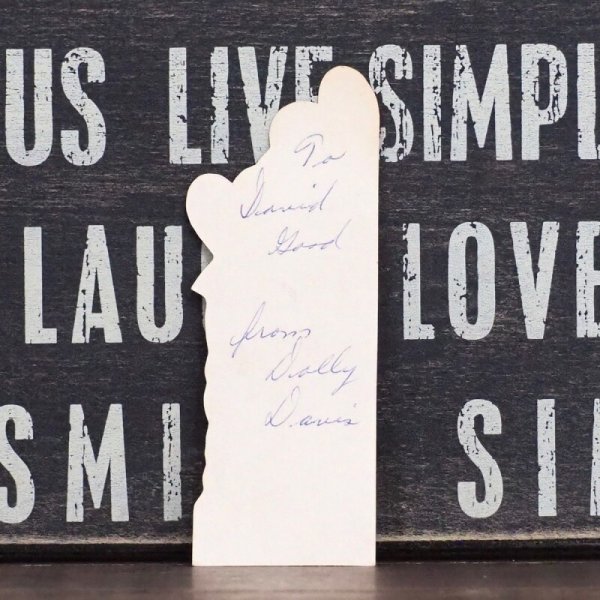 US LIVE SIMPL
LAU LOVE
SMI SI
To
David
Good
from
Dolly
Davis